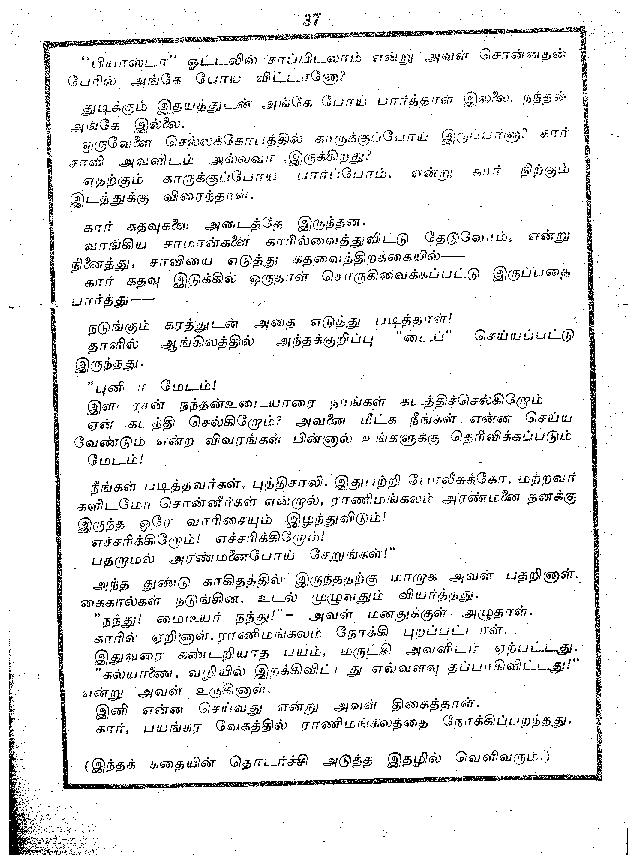 37
"பியாஸ்டா" ஓட்டலில் சாப்பிடலாம் என்று அவள் சொன்னதன்
பேரில் அங்கே போய் விட்டானோ?
துடிக்கும் இதயத்துடன் அங்கே போய் பார்த்தாள் இல்லை. நந்தன்
அங்கே இல்லை.
ஒருவேளை செல்லக்கோபத்தில் காருக்குப்போய் இருப்பானா? கார்
சாவி அவளிடம் அல்லவா இருக்கிறது?
எதற்கும் காருக்குப்போய் பார்ப்போம், என்று கார் நிற்கும்
இடத்துக்கு விரைந்தாள்.
கார் கதவுகளை அடைத்தே இருந்தன.
வாங்கிய சாமான்களை காரில்வைத்துவிட்டு தேடுவோம், என்று
நினைத்து, சாவியை எடுத்து கதவைத்திறக்கையில்—
கார் கதவு இடுக்கில் ஒருதாள் சொருகிவைக்கப்பட்டு இருப்பதை
பார்த்து——
நடுங்கும் கரத்துடன் அதை எடுத்து படித்தாள்!
தாளில் ஆங்கிலத்தில் அந்தக்குறிப்பு "டைப்" செய்யப்பட்டு
இருந்தது.
மேடம்!
நந்தன்உடையாரை நாங்கள் கடத்திச்செல்கிறோம்
ஏன் கடத்தி செல்கிறோம்? அவனை மீட்க நீங்கள் என்ன செய்ய
வேண்டும் என்ற விவரங்கள் பின்னால் உங்களுக்கு தெரிவிக்கப்படும்
மேடம்!
நீங்கள் படித்தவர்கள், புத்திசாலி. இதுபற்றி போலீசுக்கோ, மற்றவர்
களிடமோ சொன்னீர்கள் என்றால், ராணிமங்கலம் அரண்மனை தனக்கு
இருந்த ஒரே வாரிசையும் இழந்துவிடும்!
எச்சரிக்கிறோம்! எச்சரிக்கிறோம்!
பதறாமல் அரண்மனைபோய் சேருங்கள்!"
அந்த துண்டு காகிதத்தில் இருந்ததற்கு மாறாக அவள் பதறினாள்.
கைகால்கள் நடுங்கின. உடல் முழுவதும் வியர்த்தது.
"நந்து! மைடியர் நந்து!"– அவள் மனதுக்குள் அழுதாள்.
காரில் ஏறினாள். ராணிமங்கலம் நோக்கி புறப்பட்டாள்.
இதுவரை கண்டறியாத பயம், மருட்சி அவளிடம் ஏற்பட்டது.
"கல்யாணை, வழியில் இறக்கிவிட்டது எவ்வளவு தப்பாகிவிட்டது!"
என்று அவள் உருகினாள்.
இனி என்ன செய்வது என்று அவள் திகைத்தாள்.
கார், பயங்கர வேகத்தில் ராணிமங்கலத்தை நோக்கிப்பறந்தது.
(இந்தக் கதையின் தொடர்ச்சி அடுத்த இதழில் வெளிவரும்.)